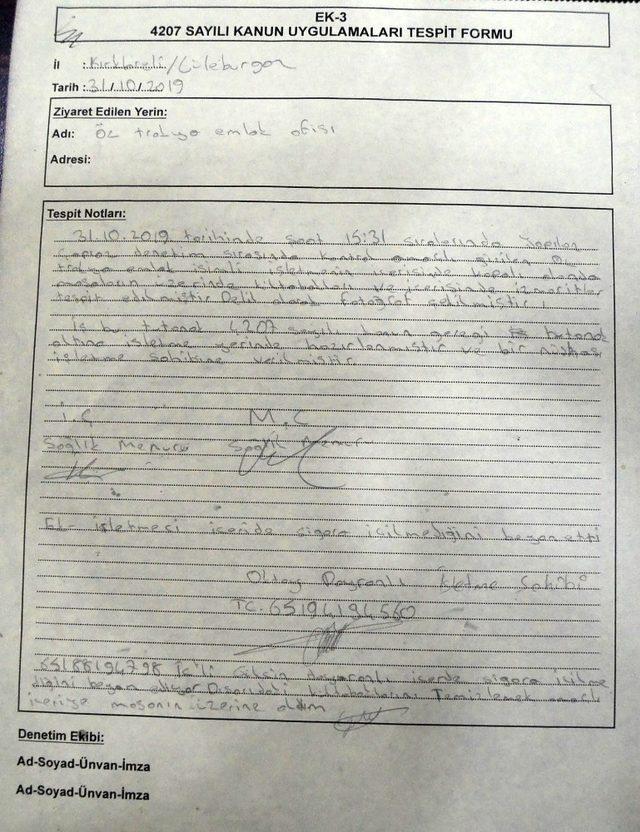 EK-3
4207 SAYILI KANUN UYGULAMALARI TESPİT FORMU
İl : Kırklareli/Lüleburgaz
Tarih : 31/10/2019
Ziyaret Edilen Yerin:
Adı: Öz trakya emlak ofisi
Adresi:
Tespit Notları:
31.10.2019 tarihinde saat 15:31 sıralarında yapılan
denetim sırasında kontrol amaçlı girilen Öz
trakya emlak isimli işletmenin içerisinde kapalı alanda
masaların üzerinde kültablaları ve içerisinde izmaritler
tespit edilmiştir. Delil olarak fotoğraf çekilmiştir.
İş bu tutanak 4207 sayılı kanun gereği tutanak
altına işletme yerinde hazırlanmıştır ve bir nüshası
işletme sahibine verilmiştir.
İ.Ç M.C
Sağlık Memuru Sağlık Memuru
Ek- işletmesi içeride sigara içilmediğini beyan etti
Oktay İşletme Sahibi
TC. 65194194560
içerde sigara içilme
diğini beyan ediyor Dışarıdaki kültablalarını Temizlemek amaçlı
içeriye masanın üzerine aldım
Denetim Ekibi:
Ad-Soyad-Ünvan-İmza
Ad-Soyad-Ünvan-İmza